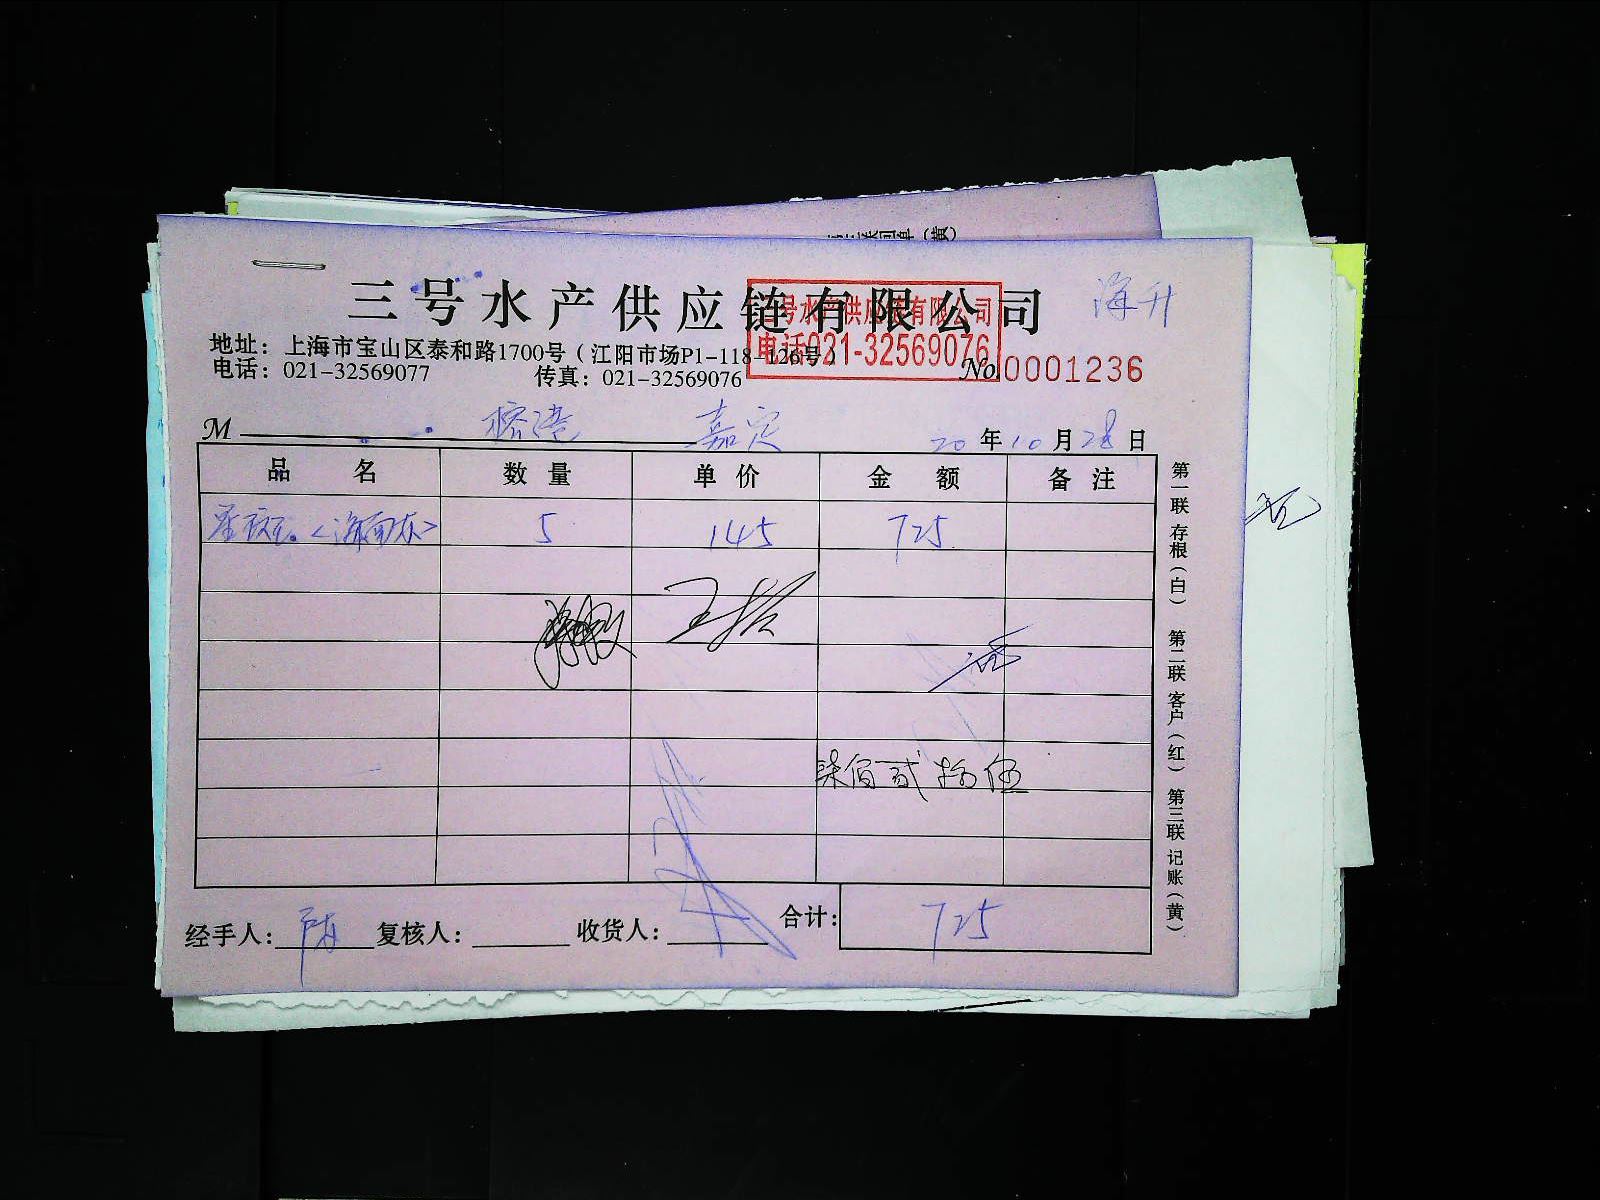 三号水产供应链有限公司
海升
三号水产供应链有限公司
电话021-32569076
地址：上海市宝山区泰和路1700号（江阳市场P1-118-126号）
电话：021-32569077 传真：021-32569076
No.0001236
M 榕港 嘉定 20年10月28日
品名 数量 单价 金额 备注
5 145 725
柒佰贰拾伍
经手人：陈 复核人： 收货人： 合计：725
第一联存根（白） 第二联客户（红） 第三联记账（黄）